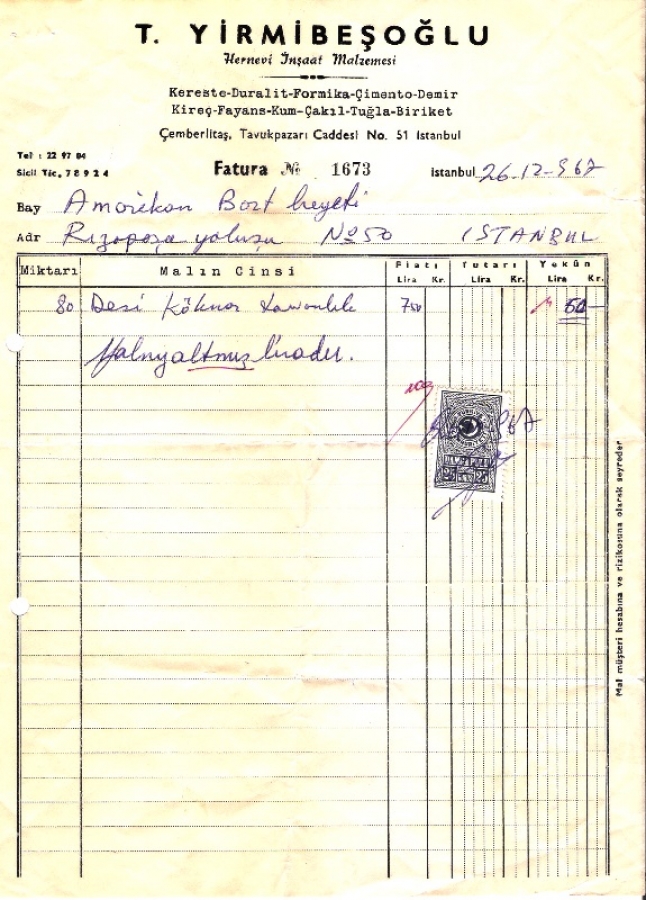 T. YİRMİBEŞOĞLU
Hernevi İnşaat Malzemesi
Kereste-Duralit-Formika-Çimento-Demir
Kireç-Fayans-Kum-Çakıl-Tuğla-Biriket
Çemberlitaş, Tavukpazarı Caddesi No. 51 Istanbul
Tel : 22 97 84
Sicil Tic. 78924
Fatura № 1673
Istanbul 26-12-967
Bay Amerikan Bort heyeti
Adr Rızapaşa yokuşu No 50 ISTANBUL
Miktarı Malın Cinsi Fiatı Tutarı Yekûn
Lira Kr. Lira Kr. Lira Kr.
80 Desi Köknar 750 60
Yalnız altmış liradır.
25 25
Mal müşteri hesabına ve rizikosuna olarak seyreder